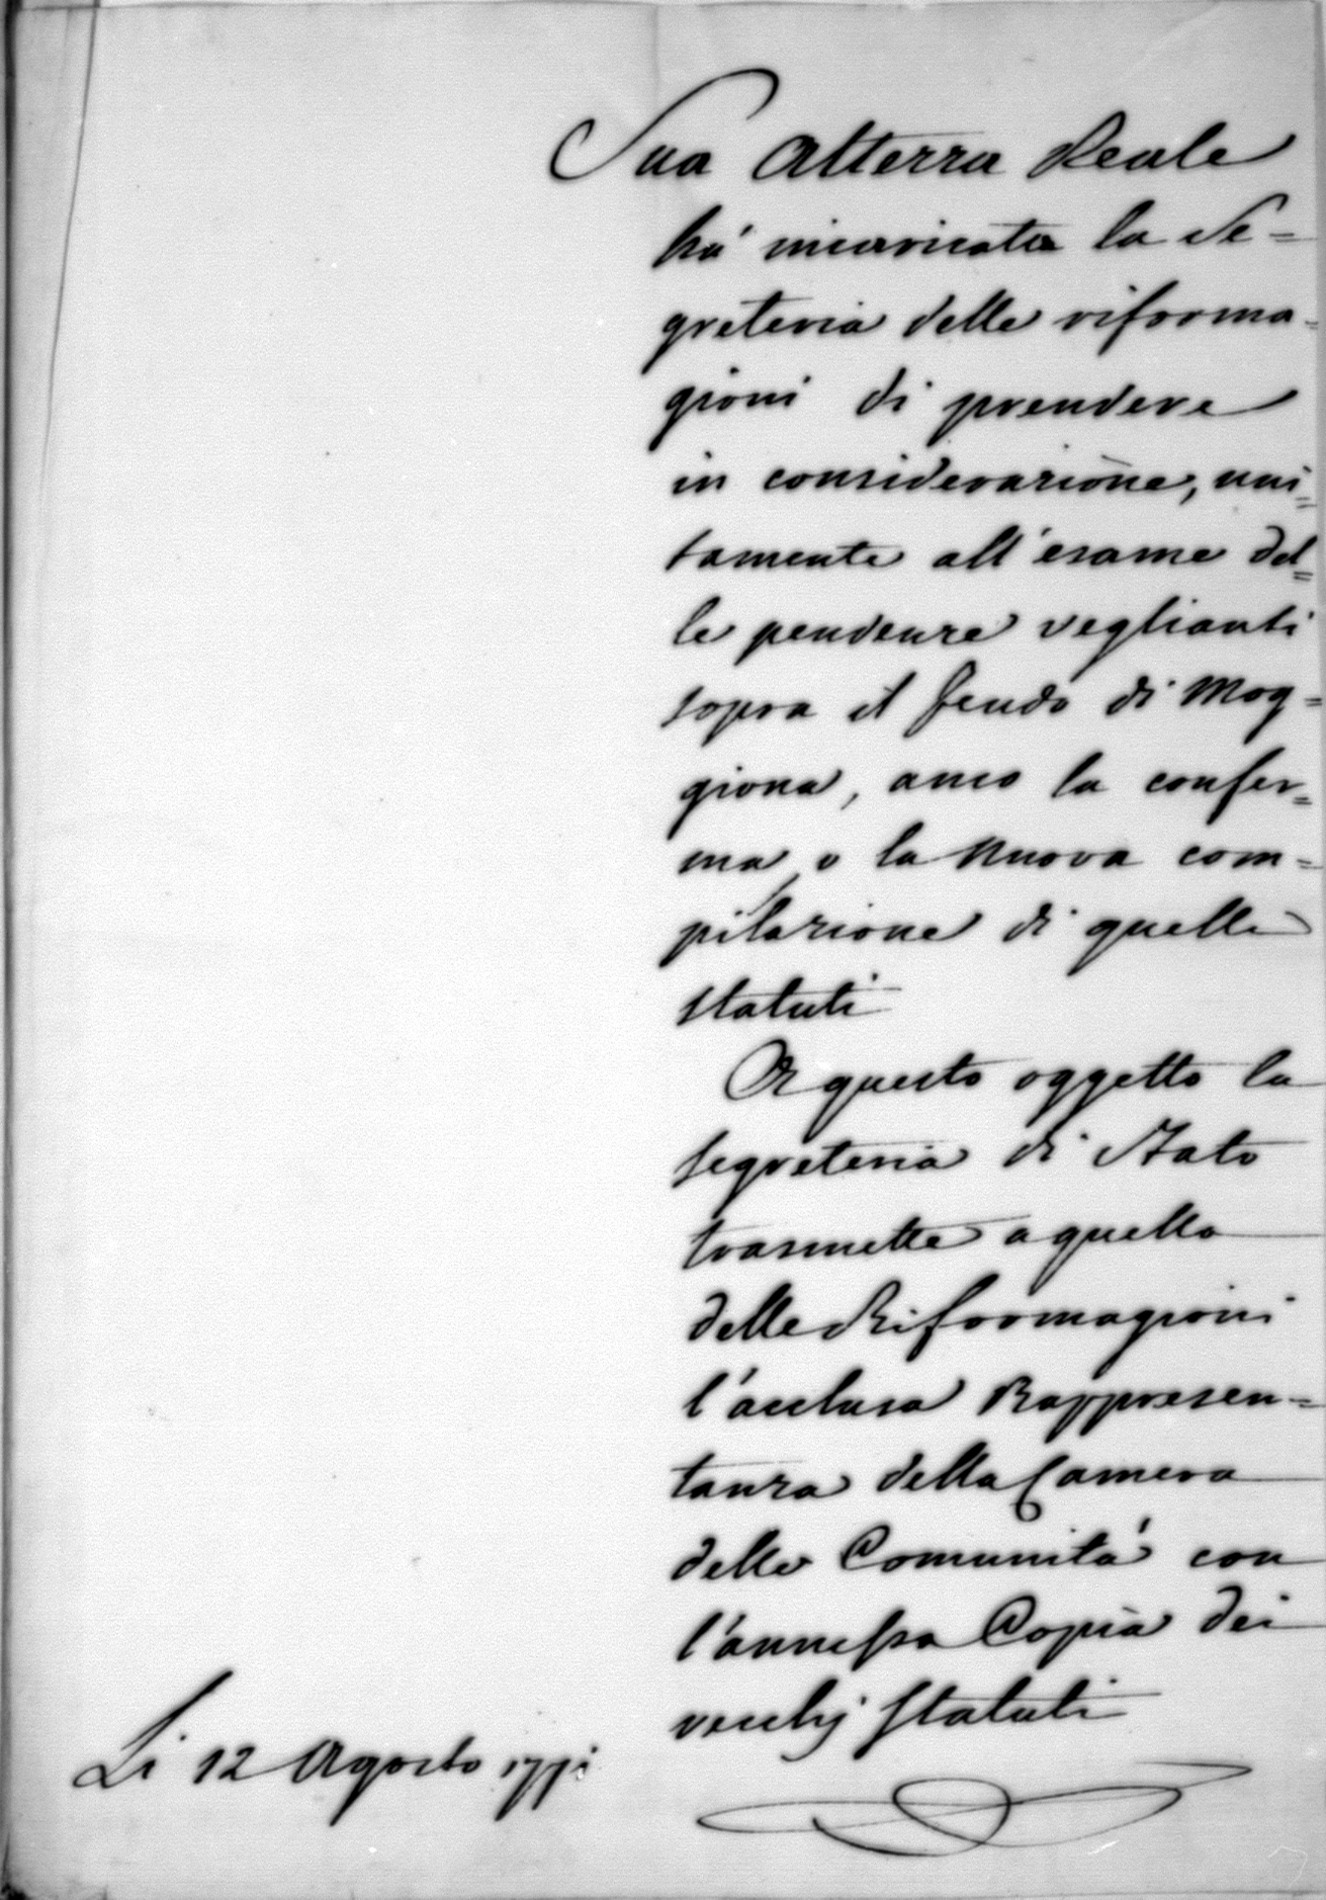 Sua Altezza Reale
há incaricata la Se=
greteria delle riforma=
gioni di prendere
in considerazione, uni=
tamente all'esame del=
le pendenze veglianti
sopra il feudo di Mog=
giona, anco la confer=
ma, o la nuova com=
pilazione di quelli
statuti
A questo oggetto la
Segreteria di Stato
trasmette a quella
delle Riformagioni
l'acclusa Rappresen=
tanza della Camera
delle Comunitá con
l'annessa Copia dei
vecchj statuti
Li 12 Agosto